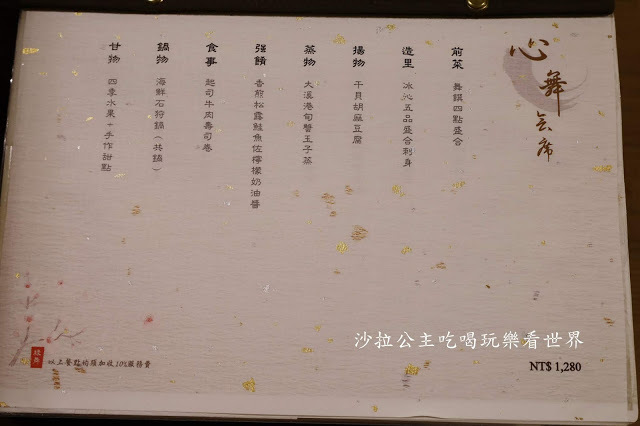 心舞会席
前菜 舞饌四點盛合
造里 冰沁五品盛合刺身
揚物 干貝胡麻豆腐
蒸物 大溪港旬蟹玉子蒸
強餚 香煎松露鮭魚佐檸檬奶油醬
食事 起司牛肉壽司卷
鍋物 海鮮石狩鍋（共鍋）
甘物 四季水果+手作甜點
沙拉公主吃喝玩樂看世界
NT$ 1,280
以上餐點均須加收10%服務費